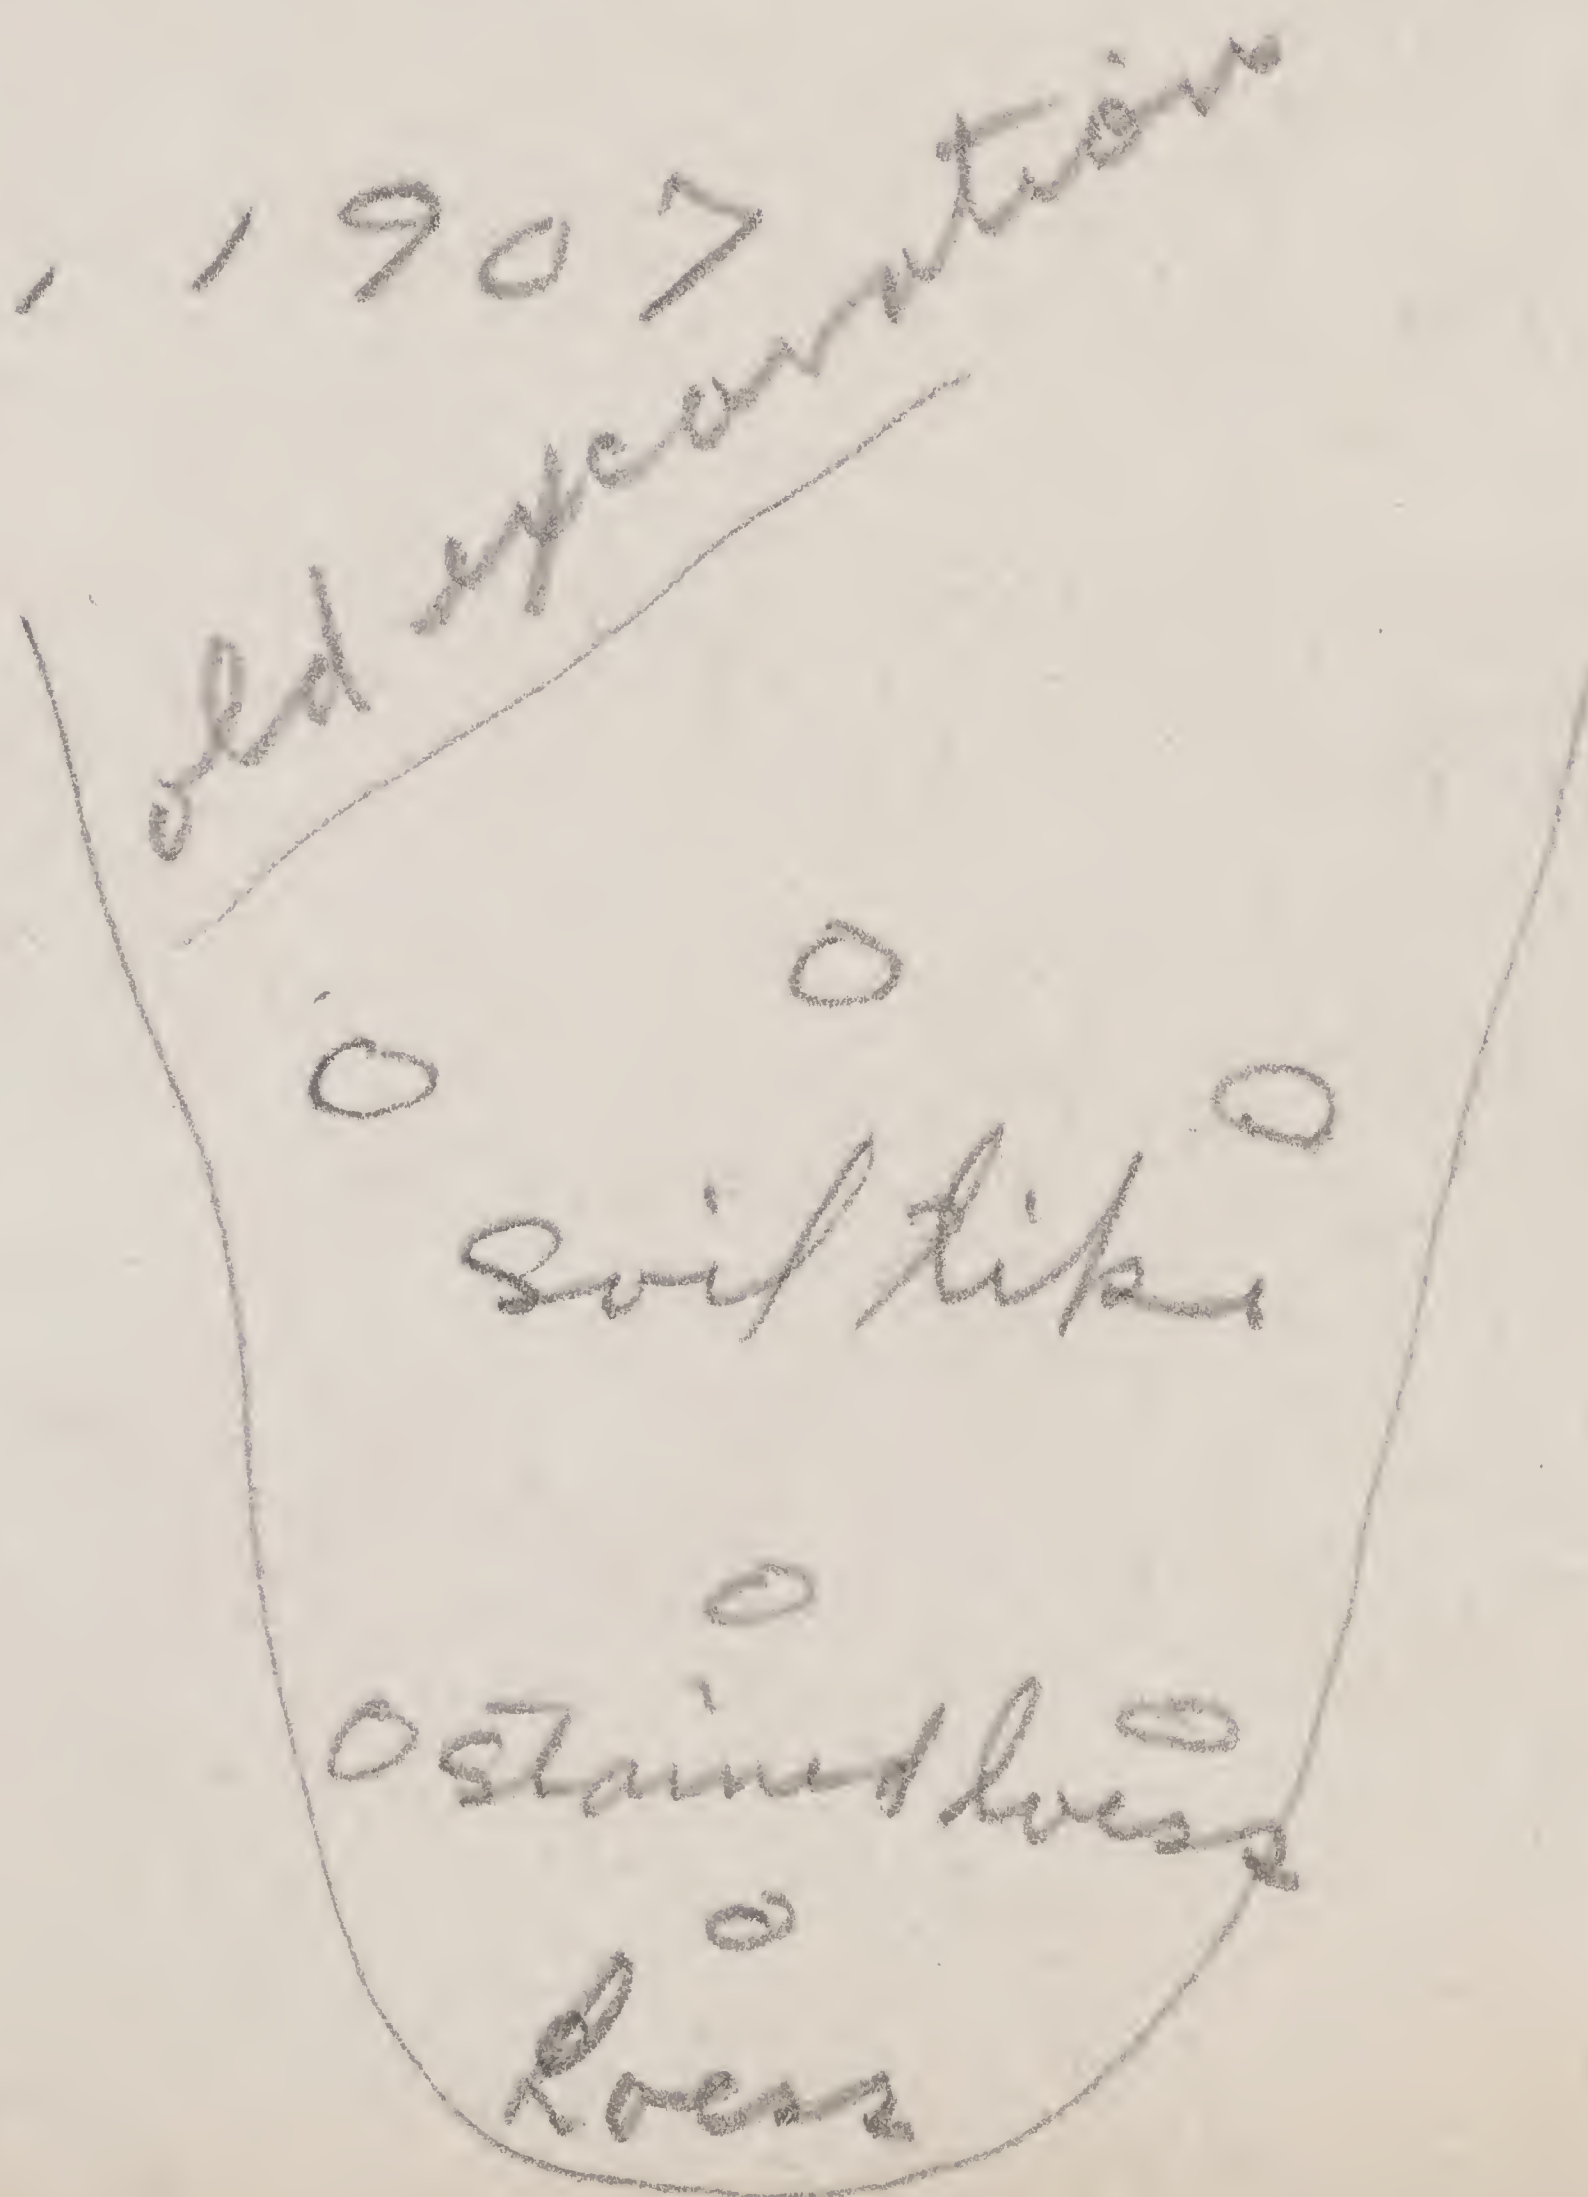 , 1907
old excavation
soil like
stained loess
Loess